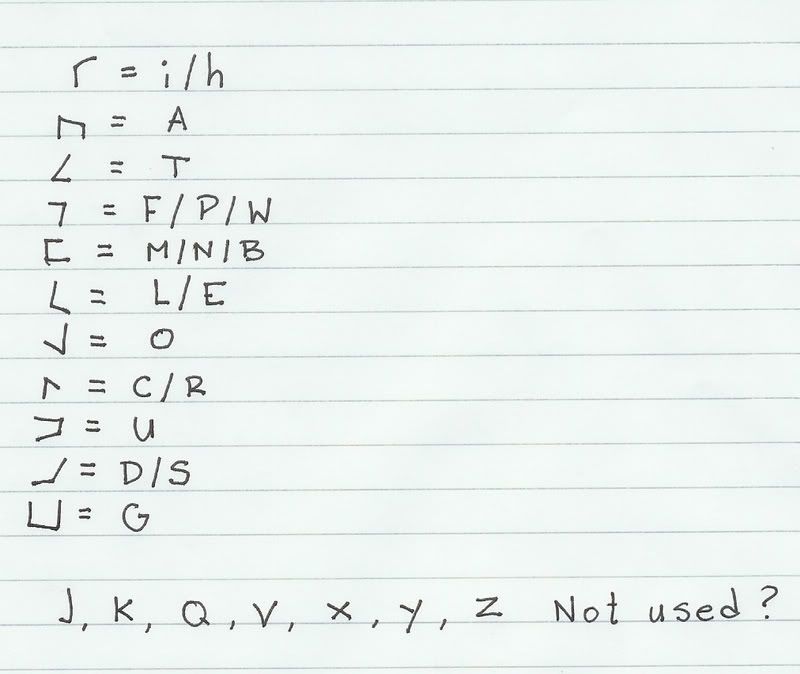 ┌ = i/h
⊓ = A
∠ = T
┐ = F/P/W
⊏ = M/N/B
L = L/E
√ = O
r = C/R
⊐ = U
┘ = D/S
⊔ = G
J, K, Q, V, X, Y, Z Not used?